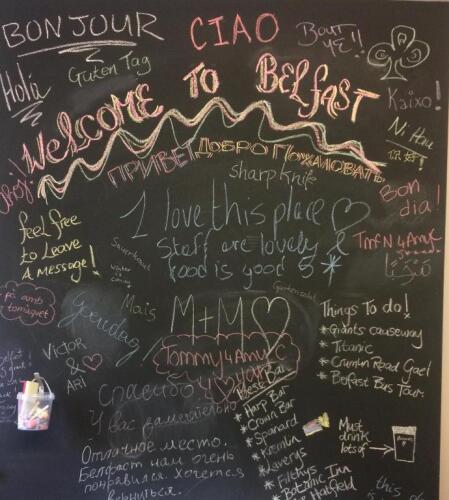 BONJOUR
CIAO
BOUT YE!!
Holá
Guten Tag
Kaixo!
WELCOME TO BELFAST
Ni Hau
ПРИВЕТ
ДОБРО ПОЖАЛОВАТЬ
sharp knife
Bon dia!
feel free
to Leave
A message!
I love this place
Staff are lovely &
food is good 5*
Sauerkraut
Mais
Gartensalat
Goeiedag
M+M
Things To do!
* Giants causeway
* Titanic
* Crumlin Road Gael
* Belfast Bus Tour
Pa amb
tomaquet
VICTOR
&
ARI
Tommy4Amy
Спасибо
У вас замечательно
Отличное место.
Белфаст нам очень
понравился. Хочется
вернуться.
Best Bar
* Harp Bar
* Crown Bar
* Spaniard
* Kremlin
* Laverys
* Filthys
* Botanic Inn
Must
drink
lots of
this